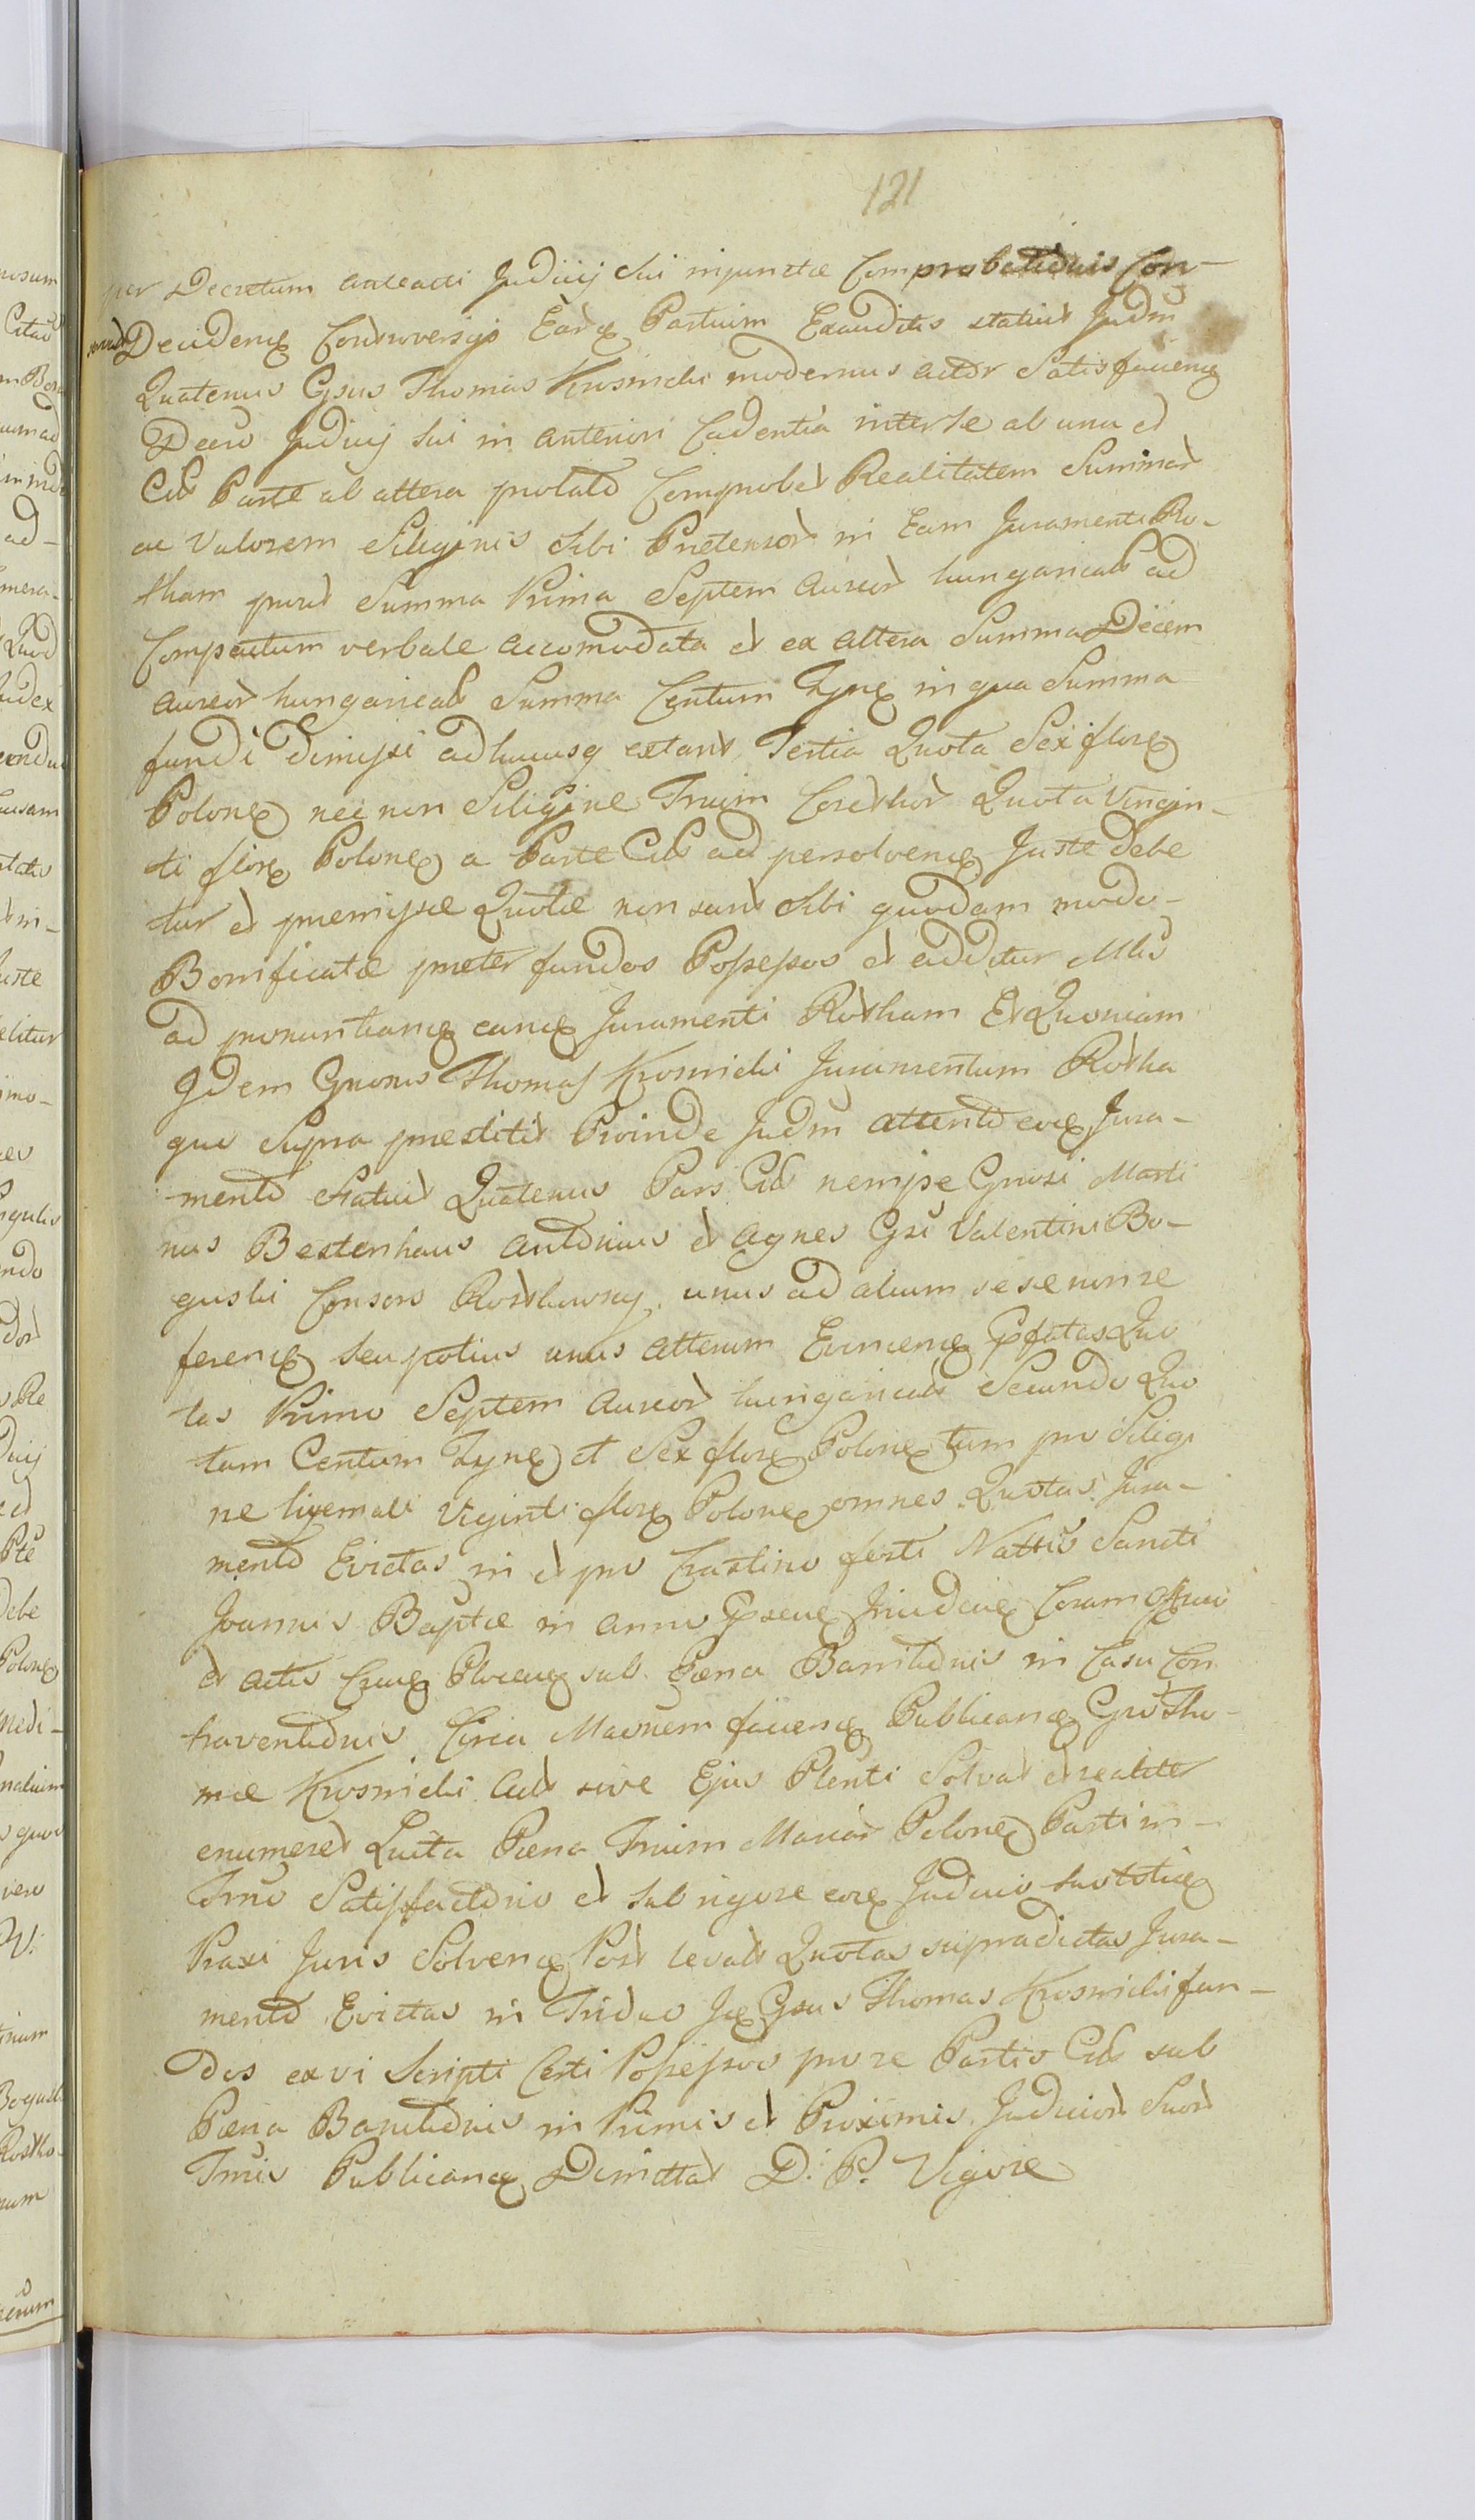 121
per Decretum anteacti Judicij Sui injunctæ Comprobationis Con-
Decidend Controversijs Eard Partium Exauditis statuit Judm
Quatenus Gsus Thomas Krosnicki modernus actor Satisfaciend
Decro Judicij Sui in anteriori Cadentia inter se ab una et
Cit Parte ab altera prolato Comprobet Realitatem Summar
ac Valorem Siliginis Sibi Prætensor in Eam Juramenti Ro-
tham quod Summa Prima Septem Aureor hungarical ad
Computum verbale accomodata et ex altera Summa Decem
aureor hungarical Summa Centum Tynf in qua Summa
fundi dimissi adhucusq extant, Tertia Quota Sex flor
Polon nec non Siligine Trium Corethor Quota Vingin-
ti flor Polon a Parte Cit ad persolvend Juste debe
tur et præmissæ Quotæ non sunt Sibi quodam modo
Bonificatæ præter fundos Possessos et additur Mtis
ad pronuntiand eand Juramenti Rotham Et Quoniam
Idem Gnosus Thomas Krosnicki Juramentum Rotha
qua Supra præstitit Proinde Judm attento eod Jura-
mento Statuit Quatenus Pars Cit nempe Gnosi Marti
nus Bestenhaus Antonius et Agnes Gsi Valentini Bo-
guski Consors Rostkowscy unus ad alium sese non re
ferend seu potius unus alterum Evincend Præfatas Quo
tas Primo Septem Aureor hungarical Secundo Quo
tam Centum Tynf et Sex flor Polon tum pro Siligi
ne hyemali Viginti flor Polon omnes Quotas Jura-
mento Evictas in et pro Crastino festi Nattis Sancti
Joannis Baptæ in anno Præsen Incidend Coram Officio
et actis Cast Plocen sub Pæna Banitionis in Casu Con
traventionis Circa Maonem faciend Publicand Gso Tho-
mæ Krosnicki Act sive Ejus Plenti Solvat et realiter
enumeret Luita Pæna Trium Marcar Polon Parti in
Trno Satisfactorio et sub rigore eod Judicio suo totiq
Praxi Juris Solvend Post levat Quotas supradictas Jura-
mento Evictas in Triduo Id Gsus Thomas Krosnicki fun-
dos ex vi Scripti Certi Possessos pro re Partis Cit sub
Pæna Banitionis in Primis et Proximis Judicior Suor
Trnis Publicand Dimittat D. P. Vigore